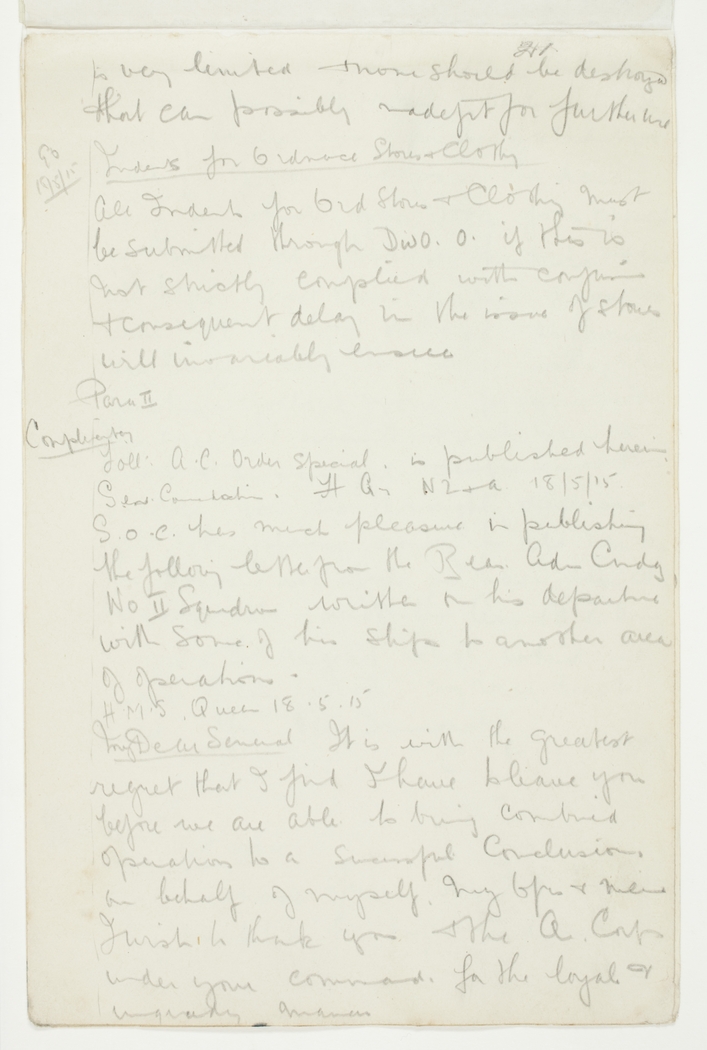 241.
is very limited & none should be destroyed
that can possibly made fit for further use
90
19/5/15
Indents for Ordnance Stores & Clothg
All Indents for Ord Stores & Clothing must
be submitted through DivO. O. if this is
not strictly complied with confusion
& consequent delay in the issue of stores
will invariably ensue
Para II
Complimentary
Foll: A.C. Order Special. is published herein.
H Qrs N Z & A 18/5/15.
G.O.C. has much pleasure in publishing
the following letter from the Rear. Adm Cmdg
No II Squadron written on his departure
with some of his ships to another area
of operations.
H.M.S. Queen 18.5.15
My Dear General It is with the greatest
regret that I find I have to leave you
before we are able to bring combined
operation to a successful Conclusion.
on behalf of myself, my Ofrs & men
I wish to thank you & the A. Corps
under your command. for the loyal &
ungrudging manner